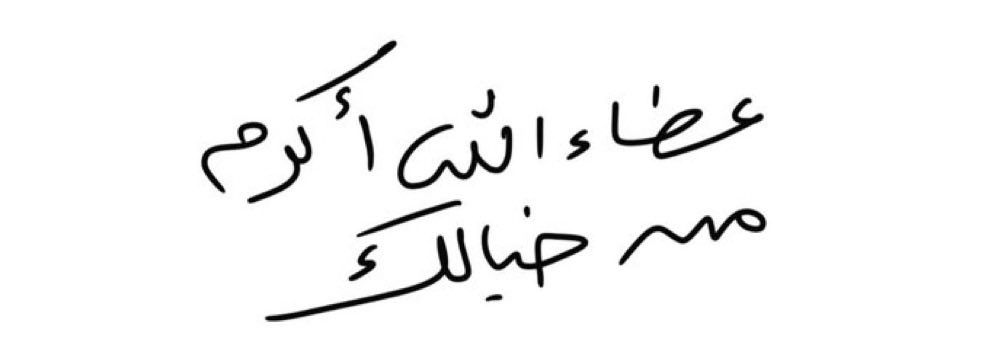 عطاء الله أكرم
من خيالك